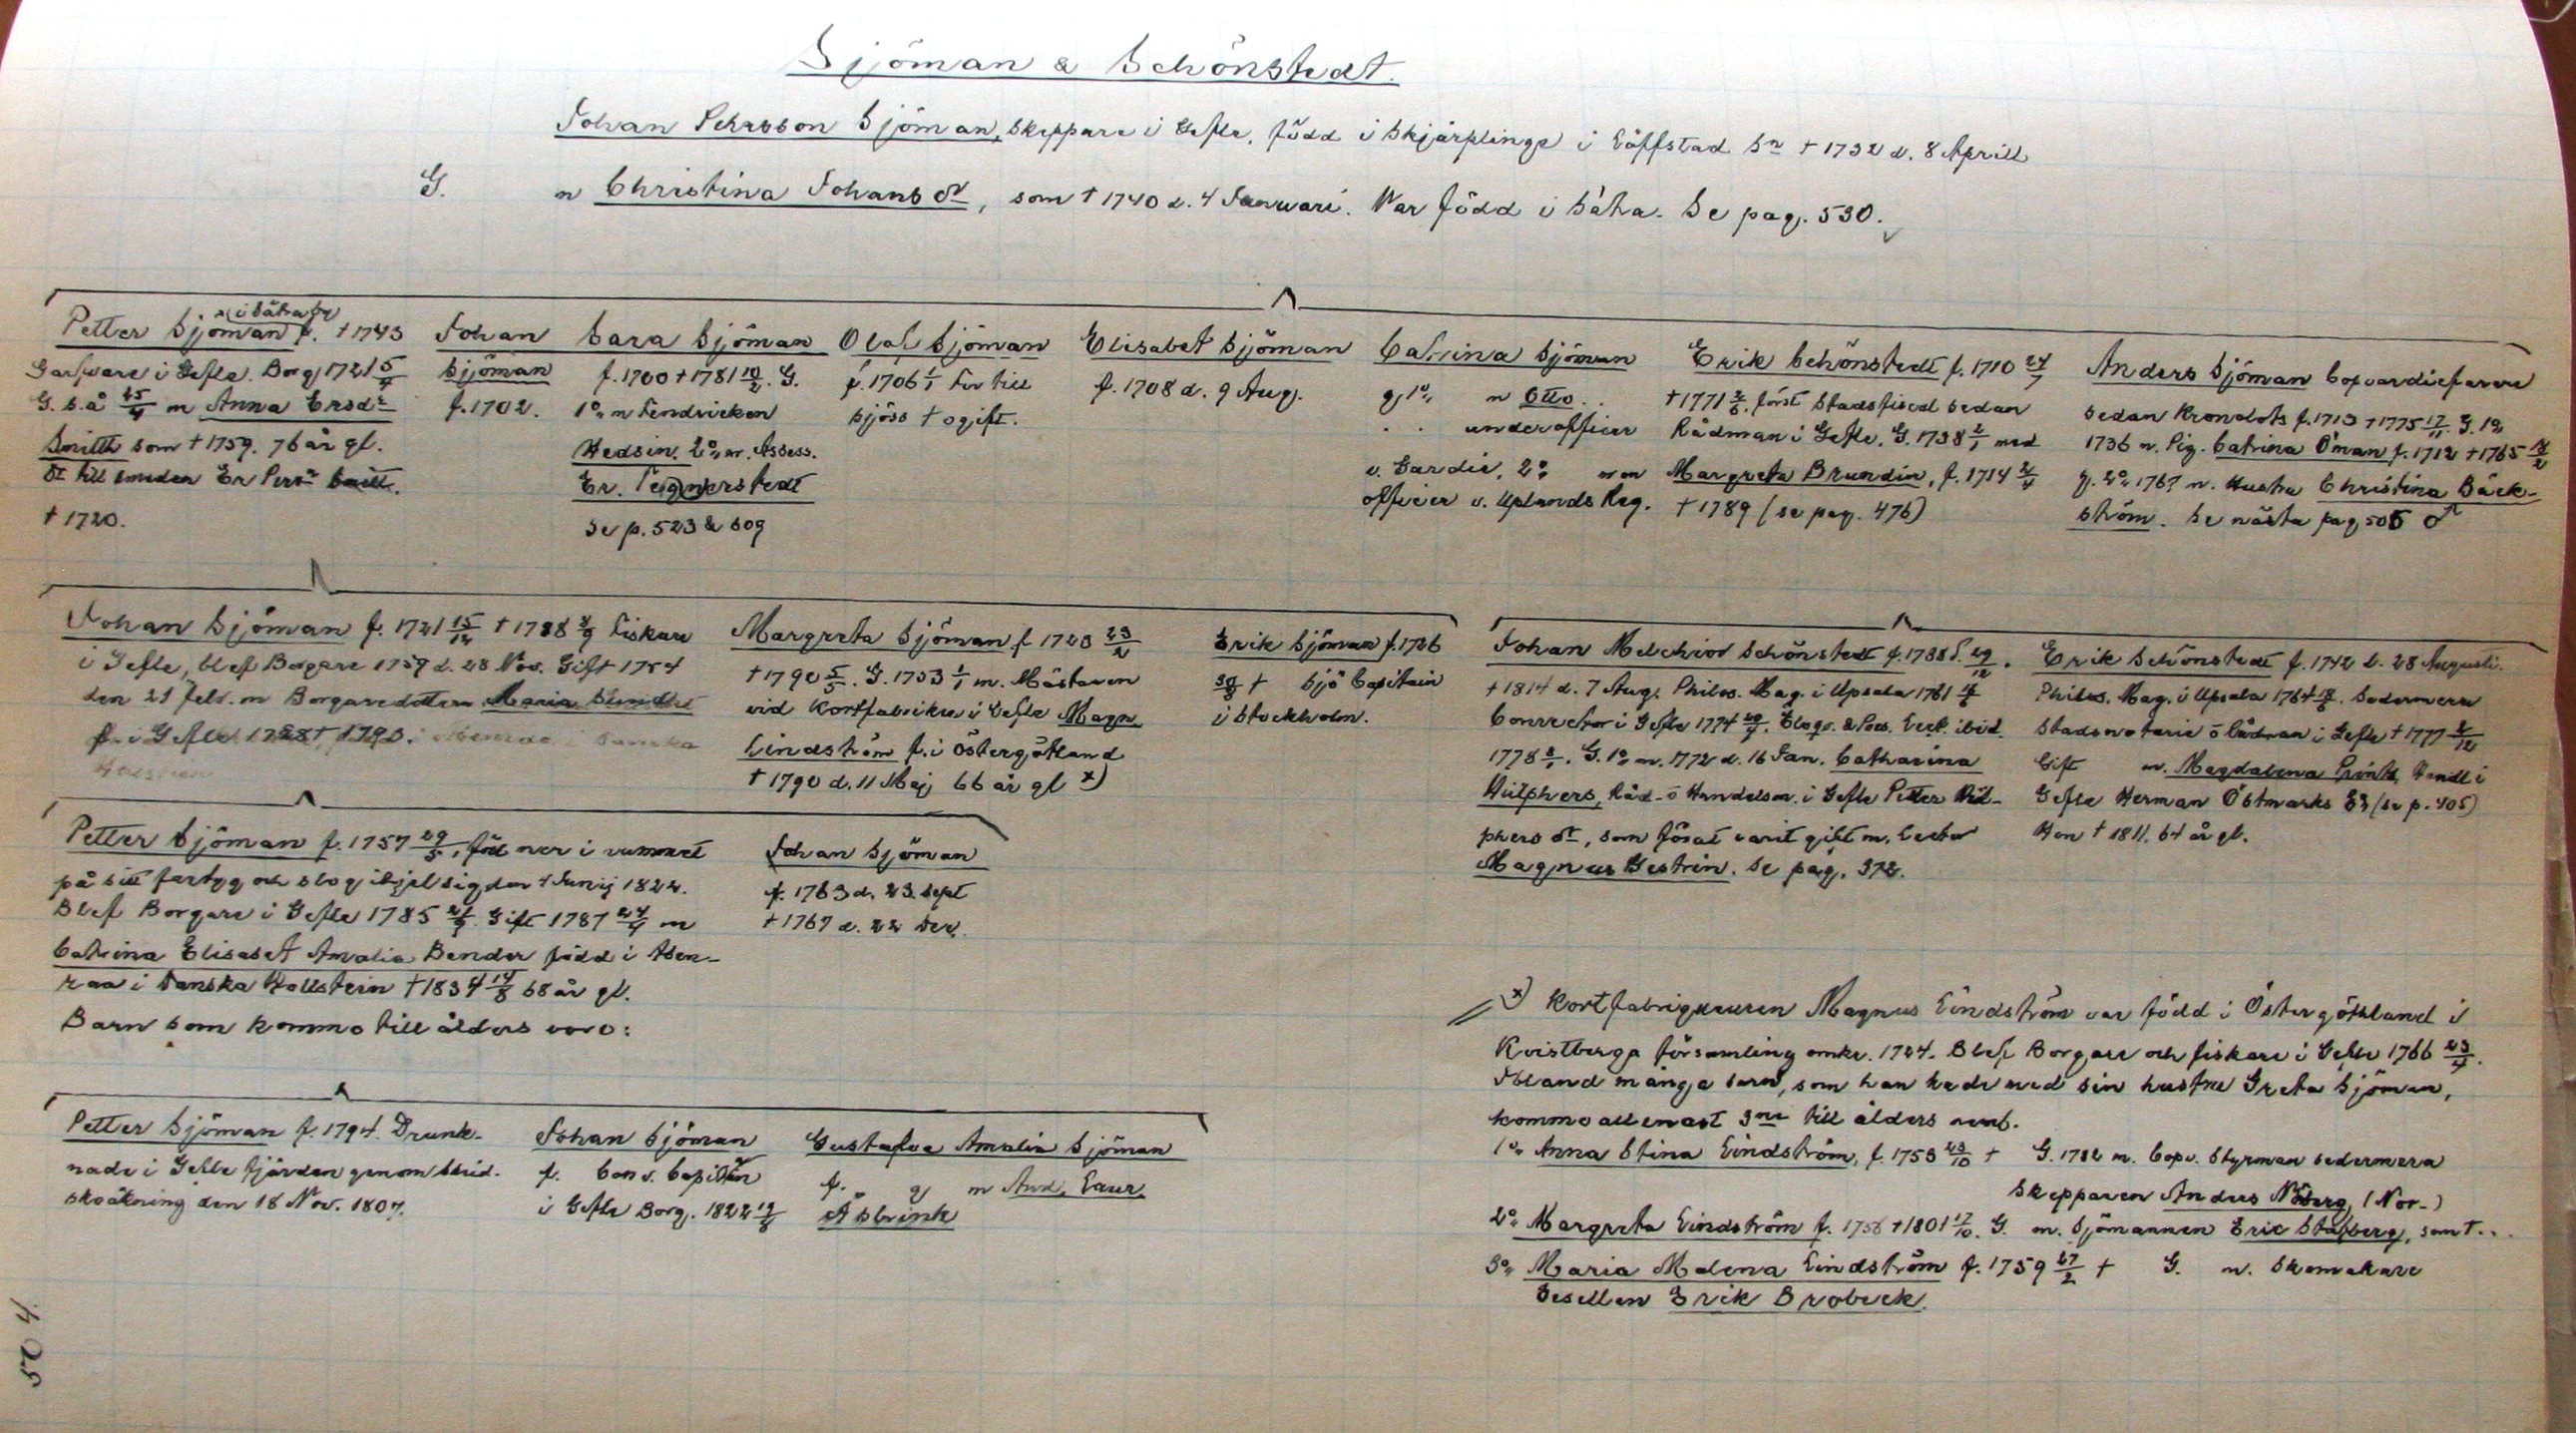 Sjöman & Schönstedt.
Johan Pehrsson Sjöman, Skeppare i Gefle, född i Skjärplinge i Löffstad Sn † 1732 d. 8 Aprill
G. m Christina Johans dr, som † 1740 d. 4 Januari. War född i Sätra. Se pag. 530.
i Sätra by
Petter Sjöman f. † 1743
Garfvare i Gefle. Borg 1721 5/4
G. s.å 25/4 m Anna Ersdr
Smitth som † 1759. 76 år gl.
dr till smeden Er Pers
† 1720.
Johan
Sjöman
f. 1702.
Sara Sjöman
f. 1700 † 1781 10/2. G.
1o m Fendricken
Hedsin. 2o m. Assess.
Er. Tegnerstedt
Se p. 523 & 609
Olof Sjöman
f. 1706 1/1 For till
sjöss † ogift.
Elisabet Sjöman
f. 1708 d. 9 Aug.
Catrina Sjöman
g 1o m Otto . .
. . underofficer
v. Gardie, 2o m en
officer v. Uplands Reg.
Erik Schönstedt f. 1710 24/7
† 1771 2/6. först Stadsfiscal sedan
Rådman i Gefle. G. 1738 2/1 med
Margreta Brundin, f. 1714 2/4
† 1789 (se pag. 476)
Anders Sjöman Copvardiefarare
sedan Kronolots f. 1713 † 1775 17/11 G. 1o
1736 m. Pig. Catrina Öman f. 1712 † 1765 12/2
g. 2o 1767 m. Hustru Christina Bäck-
ström. Se nästa pag 505
Johan Sjöman f. 1721 15/12 † 1788 8/9 Fiskare
i Gefle, blef Borgare 1759 d. 28 Nov. Gift 1754
den 21 febr. m Borgaredottern Maria
f. i Gefle 1728 † 1790.
Margreta Sjöman f 1723 23/2
† 1790 5/5. G. 1753 1/1 m. Mästaren
vid Kortfabriken i Gefle Magn.
Lindström f. i Östergötland
† 1790 d. 11 Maj 66 år gl x)
Erik Sjöman f. 1726
30/8 † Sjö Capitain
i Stockholm.
Johan Melchior Schönstedt f. 1738 d. 29/12.
† 1814 d. 7 Aug. Philos. Mag. i Upsala 1761
Conrector i Gefle 1774. Eloqv. & Poes. Lect. ibid.
1778. G. 1o m. 1772 d. 16 Jan. Catharina
Hülphers, Råd- o Handelsm. i Gefle Petter Hül-
phers dr, som förut varit gift m. Lector
Magnus Gestrin. Se pag. 372.
Erik Schönstedt f. 1742 d. 28 Augusti.
Philos. Mag. i Upsala 1764. Sedermera
Stadsnotarie o Rådman i Gefle † 1777 8/12
Gift m. Magdalena Printz, Handl i
Gefle Herman Östmarks E3 (se p. 405)
Hon † 1811. 64 år gl.
Petter Sjöman f. 1757 29/5, föll ner i rummet
på sitt fartyg och slog ihjel sig den 1 Junij 1822.
Blef Borgare i Gefle 1785 21/9. Gift 1787 24/4 m
Catrina Elisabet Amalia Bender född i Aben-
raa i Danska Hollstein † 1834 14/8 68 år gl.
Barn som kommo till ålders voro:
Johan Sjöman
f. 1763 d. 23 sept
† 1767 d. 22 Dec.
Petter Sjöman f. 1794. Drunk-
nade i Gefle fjärden genom skrid-
skoåkning den 18 Nov. 1807.
Johan Sjöman
f. Conv. Capiten
i Gefle Borg. 1822 12/6
Gustafva Amalia Sjöman
f. g m And. Laur.
Åsbrink
x) Kortfabriqueuren Magnus Lindström var född i Östergöthland i
Kvistberga församling omkr. 1724. Blef Borgare och fiskare i Gefle 1766 23/4.
Ibland många barn, som han hade med sin hustru Greta Sjöman,
kommo allenast 3ne till ålders neml.
1o Anna Stina Lindström, f. 1753 23/10 † G. 1782 m. Copv. Styrman sedermera
Skepparen Anders Norberg, (Nor-)
2o Margreta Lindström f. 1756 † 1801 17/10. G. m. Sjömannen Eric Stafberg, samt . .
3o Maria Malena Lindström f. 1759 27/2 † G. m. Skomakare
Gesellen Erik Brobeck.
504